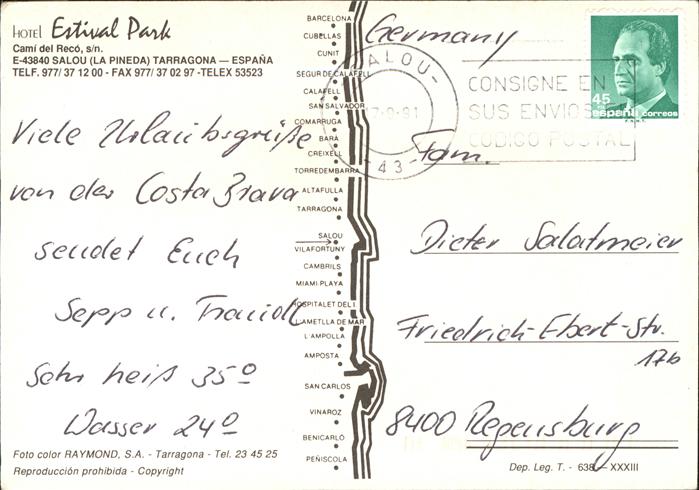 HOTEL Estival Park
Camí del Recó, s/n.
E-43840 SALOU (LA PINEDA) TARRAGONA — ESPAÑA
TELF. 977/ 37 12 00 - FAX 977/ 37 02 97 -TELEX 53523
Viele Urlaubsgrüße
von der Costa Brava
sendet Euch
Sepp u. Traudl
Sehr heiß 35º
Wasser 24º
Foto color RAYMOND, S.A. - Tarragona - Tel. 23 45 25
Reproducción prohibida - Copyright
BARCELONA
CUBELLAS
CUNIT
SEGUR DE CALAFELL
CALAFELL
SAN SALVADOR
COMARRUGA
BARÁ
CREIXELL
TORREDEMBARRA
ALTAFULLA
TARRAGONA
SALOU
VILAFORTUNY
CAMBRILS
MIAMI PLAYA
HOSPITALET DEL I.
L'AMETLLA DE MAR
L'AMPOLLA
AMPOSTA
SAN CARLOS
VINAROZ
BENICARLÓ
PEÑISCOLA
Germany
SALOU-
-9-91
-43-
CONSIGNE EN
SUS ENVIOS
CODIGO POSTAL
45
españa correos
Fam.
Dieter Salatmeier
Friedrich-Ebert-Str.
17b
8400 Regensburg
Dep. Leg. T. - 638 - XXXIII